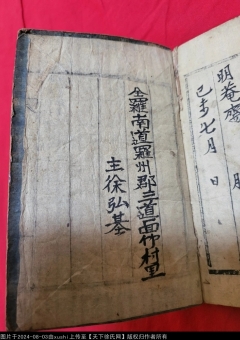 明菴齋
己未七月 日
全羅南道羅州郡三道面竹村里
主徐弘基
图片于2024-08-03由xushi上传至【天下徐氏网】版权归作者所有